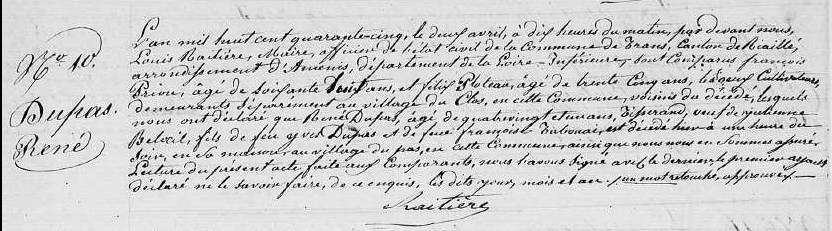 N.º 10.
Dupas
René
L'an mil huit cent quarante-cinq, le deux avril, à dix heures du matin, par devant nous,
Louis Raitière, Maire, officier de l'état civil de la Commune de Trans, canton de Riaillé,
arrondissement d'Ancenis, département de la Loire-Inférieure, sont Comparus françois
Priou, âgé de soixante huit ans, et félix Ploteau, âgé de trente Cinq ans, les deux Cultivateurs,
demeurants séparément au village du Clos, en cette Commune, voisins du décédé, lesquels
nous ont déclaré que René Dupas, âgé de quatrevingt et un ans, Tisserand, veuf de julienne
Beloeil, fils de feu yves Dupas et de feue françoise, est décédé hier à une heure du
soir, en sa maison, au village du pas, en cette Commune, ainsi que nous nous en sommes assuré.
Lecture du présent acte faite aux Comparants, nous l'avons signé avec le dernier, le premier ayant
déclaré ne le savoir faire, de ce enquis, les dits jour, mois et an. un mot retouché, approuvé.
Raitière